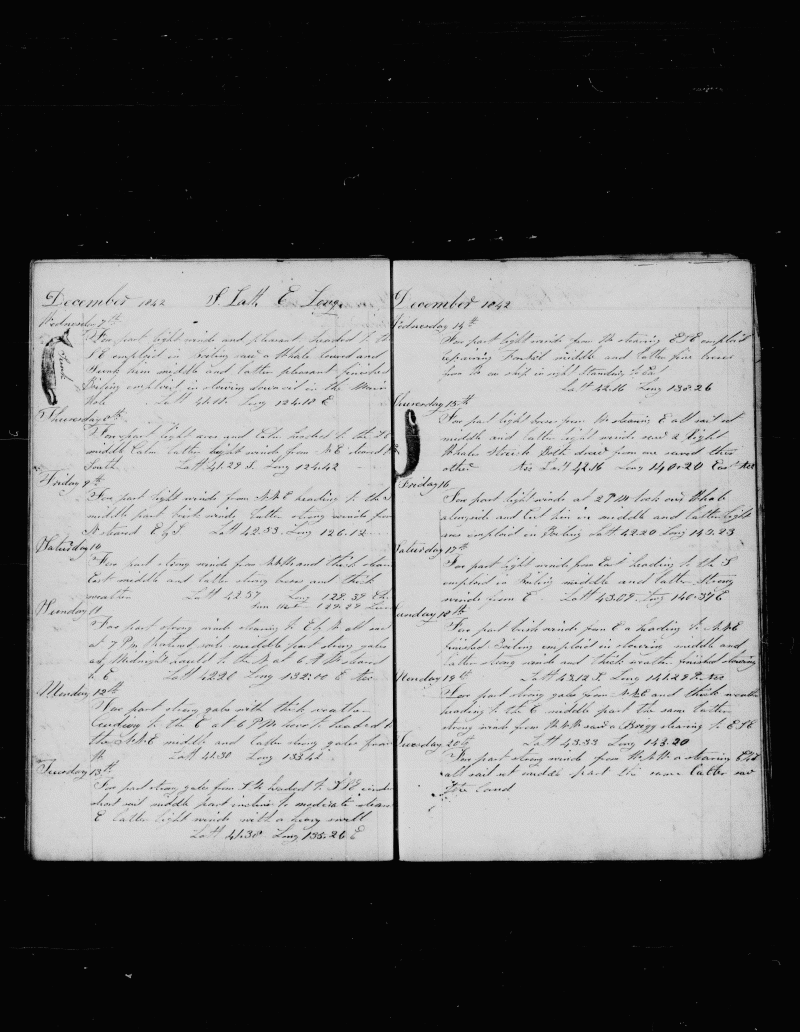 December 1842 S. Latt E Long
Wednesday 7th
Fore part light winds and pleasant headed to the
S E employed in Boiling saw a Whale lowed and
Sunk him middle and latter pleasant finished
Boiling employed in stowing down oil in the Main
Hole Latt 41.11 Long 124.18 E
Sunk
Thursday 8th
Fore part light aires and Calm headed to the S E
middle Calm latter light winds from N E
South Latt 41.29 S. Long 124.42
Friday 9th
Fore part light winds from N N E heading to the
middle part brisk winds latter strong winds from
N steared E by S Latt 42.33 Long 126.12
Saturday 10
Fore part strong winds from and thick
East middle and latter strong breeses and thick
weather Latt 42.57 Long 128.39
129.29
Sunday 11
Fore part strong winds stearing E by N all sail
at 7 P m middle part strong gales
at Midnight to the N at 6 A M
to E Latt 42.20 Long 132.00 E
Monday 12th
Fore part strong gales with thick weather
to the E at 6 P M headed
the N N E middle and latter strong gales from
N Latt 41.30 Long 133.42
Tuesday 13th
Fore part strong gales from headed to under
short sail middle part incline to moderate
E latter light winds with a heavy swell
Latt 41.38 Long 135.26 E
December 1842
Wednesday 14th
Fore part light winds from the stearing E S E employed
repairing Foresail middle and latter fine breeses
from the one ship in sight standing to
Latt 42.16 Long 138.26
Thursday 15th
Fore part light breses from stearing E all sail set
middle and latter light winds saw 2 Right
Whales Struck Both from one saved the
other Latt 42.16 Long 140.20 East
Friday 16
Fore part light winds at 2 P M took our Whale
alongside and Cut him in middle and latter light
aires employed in Boiling Latt 42.20 Long 140.23
Saturday 17th
Fore part light winds from East heading to the S
employed in Boiling middle and latter strong
winds from E Latt 43.08 Long 140.37 E
Sunday 18th
Fore part brisk winds from E heading to N N E
finished Boiling employed in stowing middle and
latter strong winds and thick weather finished stowing
Monday 19th Latt 43.12 S. Long 141.29
Fore part strong gales from N N E and thick weather
heading to the E middle part the same latter
strong winds from saw a Brigg stearing to E S E
Tuesday 20th Latt 43.33 Long 143.20
Fore part strong winds from stearing
all sail set middle part the same latter saw
Land